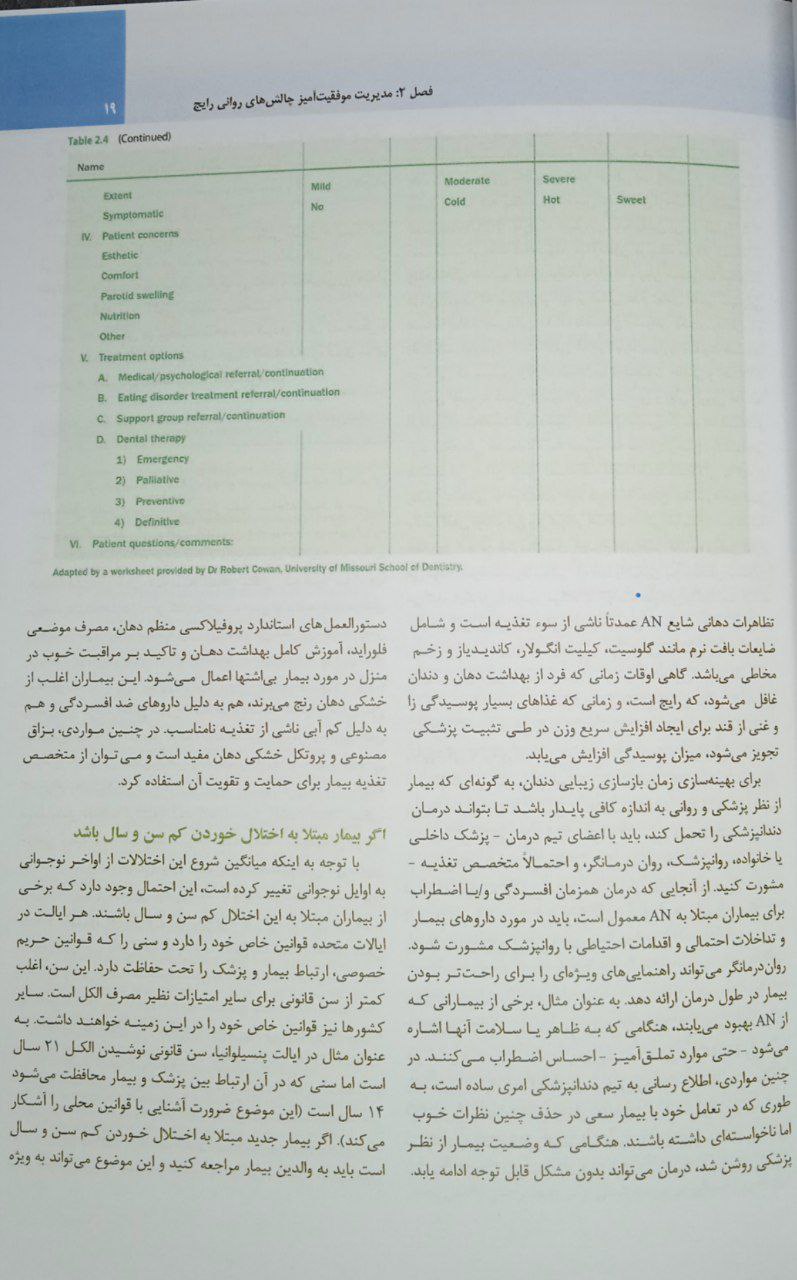 ۱۹
فصل ۲: مدیریت موفقیت‌آمیز چالش‌های روانی رایج
Table 2.4 (Continued)
Name
Extent Mild Moderate Severe
Symptomatic No Cold Hot Sweet
IV. Patient concerns
Esthetic
Comfort
Parotid swelling
Nutrition
Other
V. Treatment options
A. Medical/psychological referral/continuation
B. Eating disorder treatment referral/continuation
C. Support group referral/continuation
D. Dental therapy
1) Emergency
2) Palliative
3) Preventive
4) Definitive
VI. Patient questions/comments:
Adapted by a worksheet provided by Dr Robert Cowan, University of Missouri School of Dentistry.
تظاهرات دهانی شایع AN عمدتاً ناشی از سوء تغذیه است و شامل
ضایعات بافت نرم مانند گلوسیت، کیلیت انگولار، کاندیدیاز و زخم
مخاطی می‌باشد. گاهی اوقات زمانی که فرد از بهداشت دهان و دندان
غافل می‌شود، که رایج است، و زمانی که غذاهای بسیار پوسیدگی زا
و غنی از قند برای ایجاد افزایش سریع وزن در طی تثبیت پزشکی
تجویز می‌شود، میزان پوسیدگی افزایش می‌یابد.
برای بهینه‌سازی زمان بازسازی زیبایی دندان، به گونه‌ای که بیمار
از نظر پزشکی و روانی به اندازه کافی پایدار باشد تا بتواند درمان
دندانپزشکی را تحمل کند، باید با اعضای تیم درمان - پزشک داخلی
یا خانواده، روانپزشک، روان درمانگر، و احتمالاً متخصص تغذیه -
مشورت کنید. از آنجایی که درمان همزمان افسردگی و/یا اضطراب
برای بیماران مبتلا به AN معمول است، باید در مورد داروهای بیمار
و تداخلات احتمالی و اقدامات احتیاطی با روانپزشک مشورت شود.
روان‌درمانگر می‌تواند راهنمایی‌های ویژه‌ای را برای راحت‌تر بودن
بیمار در طول درمان ارائه دهد. به عنوان مثال، برخی از بیمارانی که
از AN بهبود می‌یابند، هنگامی که به ظاهر یا سلامت آنها اشاره
می‌شود - حتی موارد تملق‌آمیز - احساس اضطراب می‌کنند. در
چنین مواردی، اطلاع رسانی به تیم دندانپزشکی امری ساده است، به
طوری که در تعامل خود با بیمار سعی در حذف چنین نظرات خوب
اما ناخواسته‌ای داشته باشند. هنگامی که وضعیت بیمار از نظر
پزشکی روشن شد، درمان می‌تواند بدون مشکل قابل توجه ادامه یابد.
دستورالعمل‌های استاندارد پروفیلاکسی منظم دهان، مصرف موضعی
فلوراید، آموزش کامل بهداشت دهان و تاکید بر مراقبت خوب در
منزل در مورد بیمار بی‌اشتها اعمال می‌شود. این بیماران اغلب از
خشکی دهان رنج می‌برند، هم به دلیل داروهای ضد افسردگی و هم
به دلیل کم آبی ناشی از تغذیه نامناسب. در چنین مواردی، بزاق
مصنوعی و پروتکل خشکی دهان مفید است و می‌توان از متخصص
تغذیه بیمار برای حمایت و تقویت آن استفاده کرد.
اگر بیمار مبتلا به اختلال خوردن کم سن و سال باشد
با توجه به اینکه میانگین شروع این اختلالات از اواخر نوجوانی
به اوایل نوجوانی تغییر کرده است، این احتمال وجود دارد که برخی
از بیماران مبتلا به این اختلال کم سن و سال باشند. هر ایالت در
ایالات متحده قوانین خاص خود را دارد و سنی را که قوانین حریم
خصوصی، ارتباط بیمار و پزشک را تحت حفاظت دارد. این سن، اغلب
کمتر از سن قانونی برای سایر امتیازات نظیر مصرف الکل است. سایر
کشورها نیز قوانین خاص خود را در این زمینه خواهند داشت. به
عنوان مثال در ایالت پنسیلوانیا، سن قانونی نوشیدن الکل ۲۱ سال
است اما سنی که در آن ارتباط بین پزشک و بیمار محافظت می‌شود
۱۴ سال است (این موضوع ضرورت آشنایی با قوانین محلی را آشکار
می‌کند). اگر بیمار جدید مبتلا به اختلال خوردن کم سن و سال
است باید به والدین بیمار مراجعه کنید و این موضوع می‌تواند به ویژه